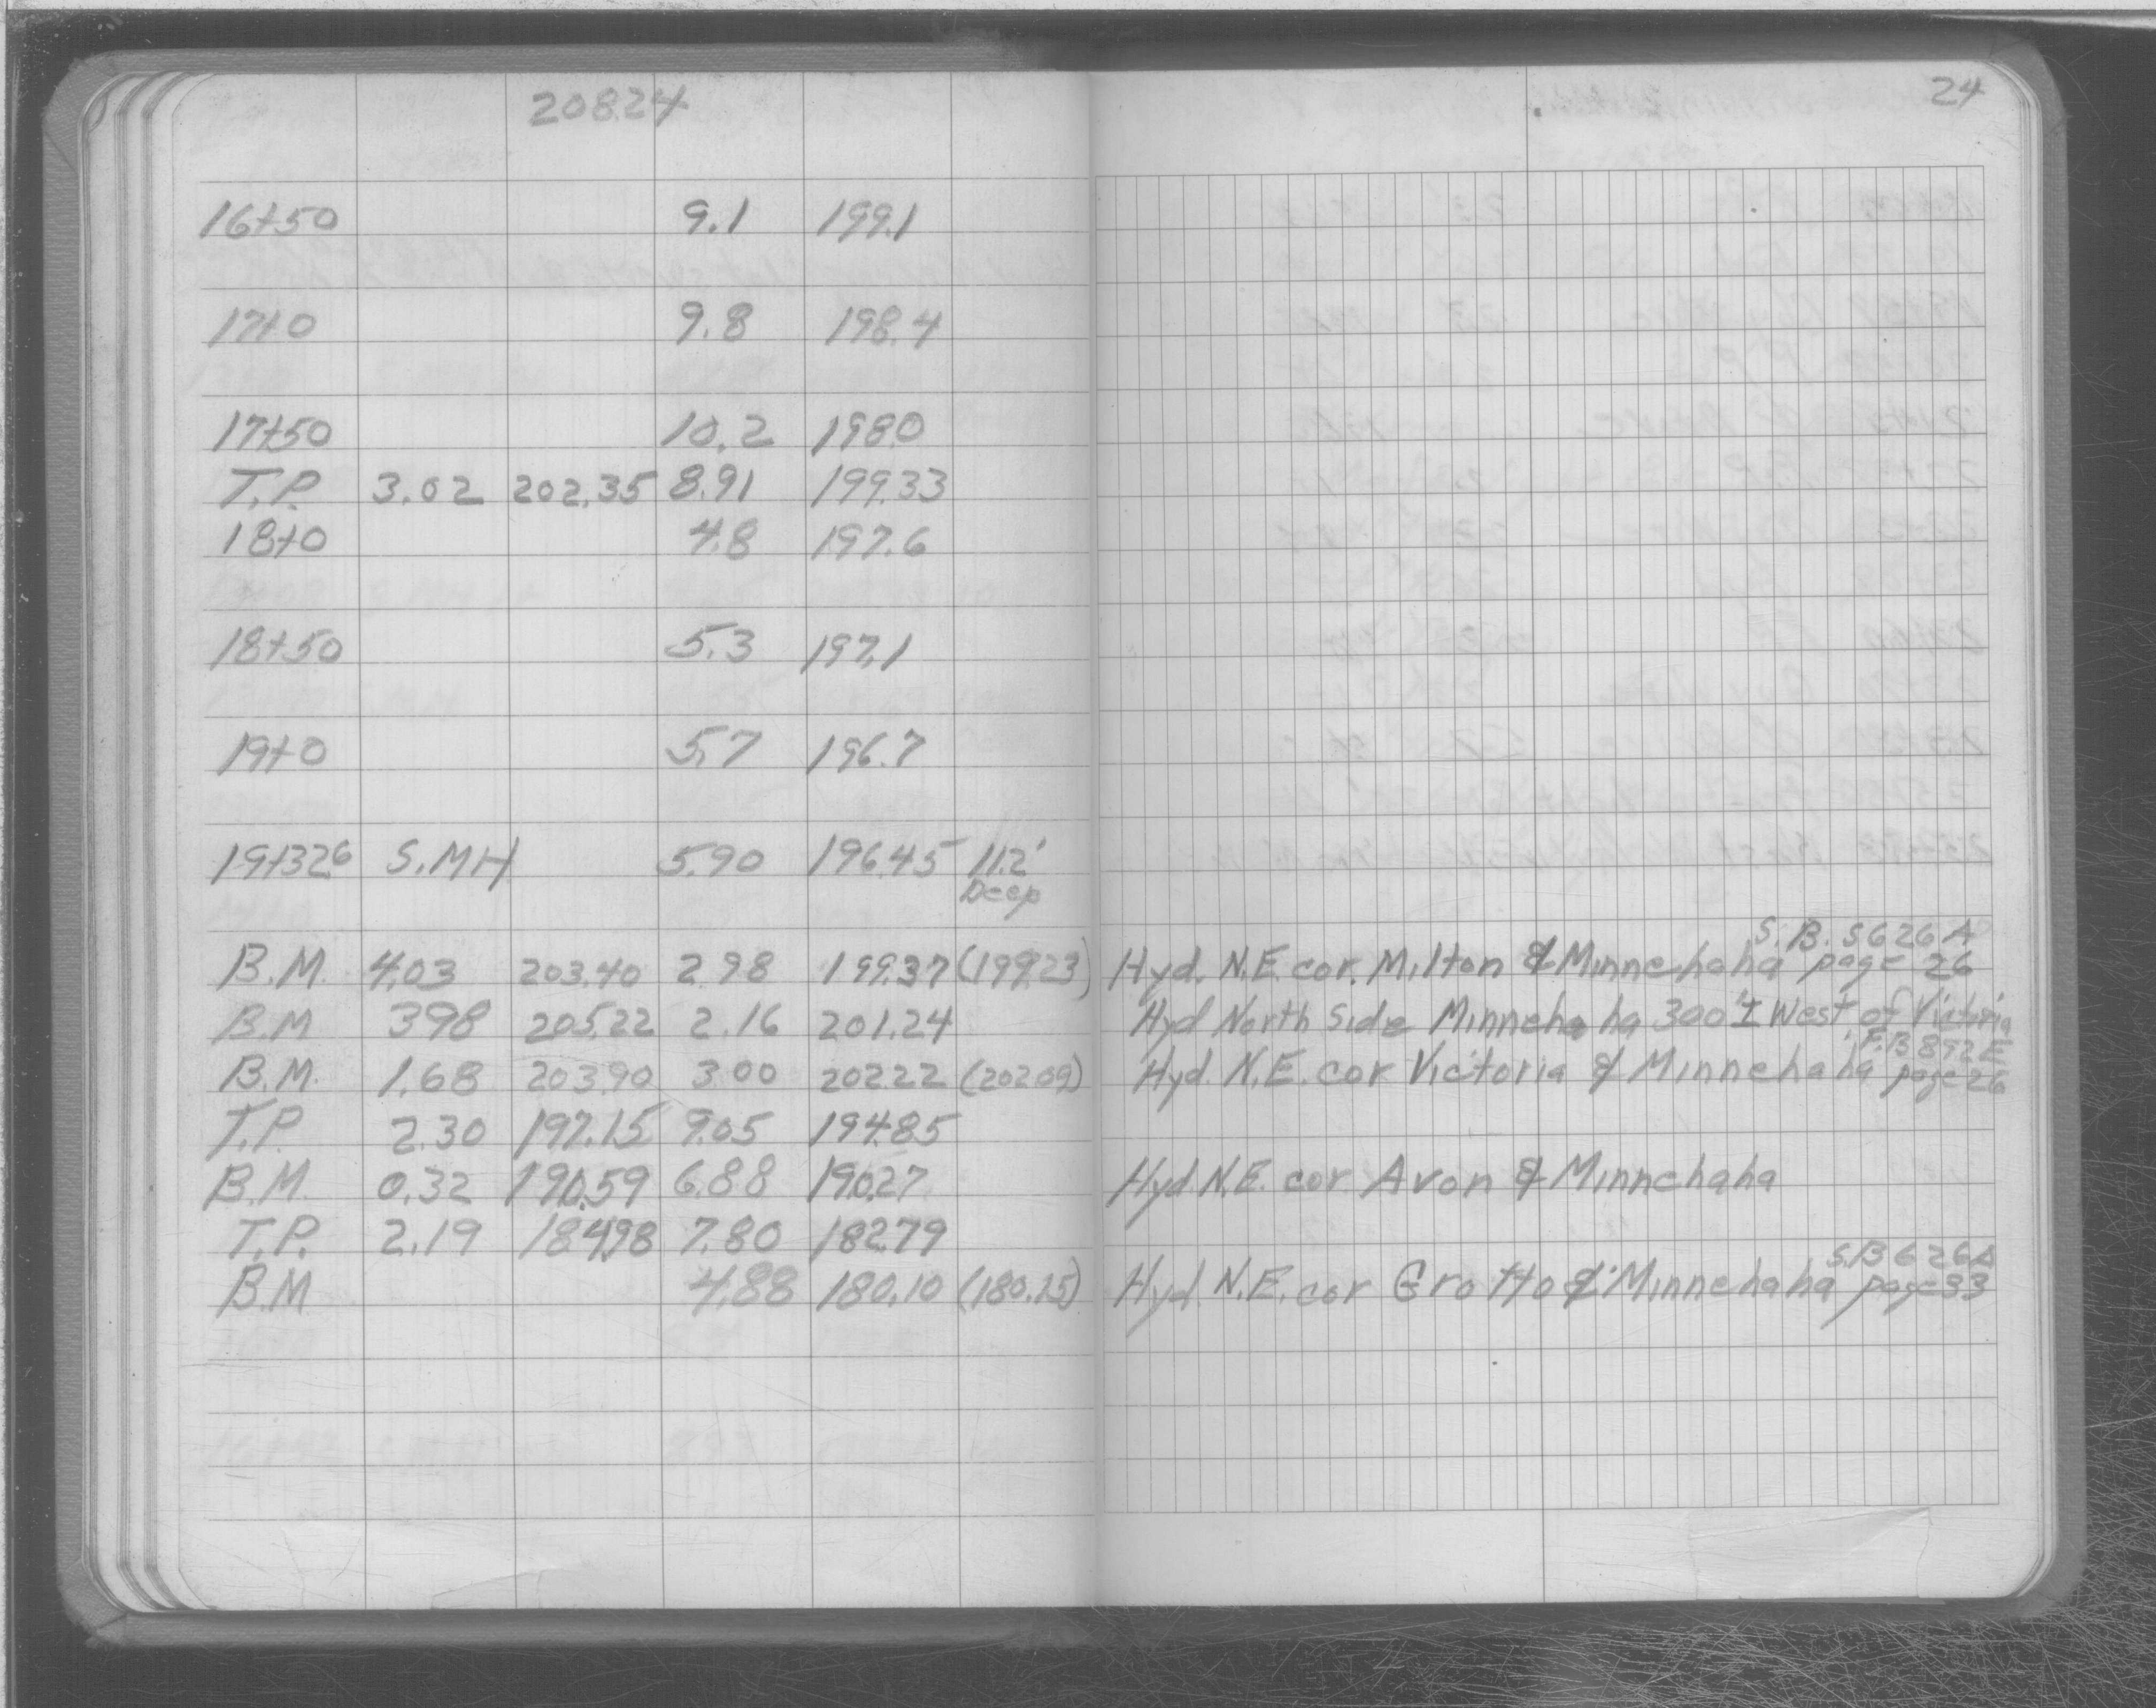 208.24
24
16+50 9.1 199.1
17+0 9.8 198.4
17+50 10.2 198.0
T.P. 3.02 202.35 8.91 199.33
18+0 4.8 197.6
18+50 5.3 197.1
19+0 5.7 196.7
19+32.6 S.MH 5.90 196.45 11.2'
Deep
S.B. 5626A
B.M. 4.03 203.40 2.98 199.37 (199.23) Hyd. N.E. cor. Milton & Minnehaha page 26
B.M 3.98 205.22 2.16 201.24 Hyd North Side Minnehaha 300'± West of Victoria
F.B 892E
B.M. 1.68 203.90 3.00 202.22 (202.09) Hyd. N.E. cor Victoria & Minnehaha page 26
T.P. 2.30 197.15 9.05 194.85
B.M. 0.32 190.59 6.88 190.27 Hyd N.E. cor Avon & Minnehaha
T.P. 2.19 184.98 7.80 182.79
S.B 626A
B.M 4.88 180.10 (180.15) Hyd. N.E. cor Grotto & Minnehaha page 33